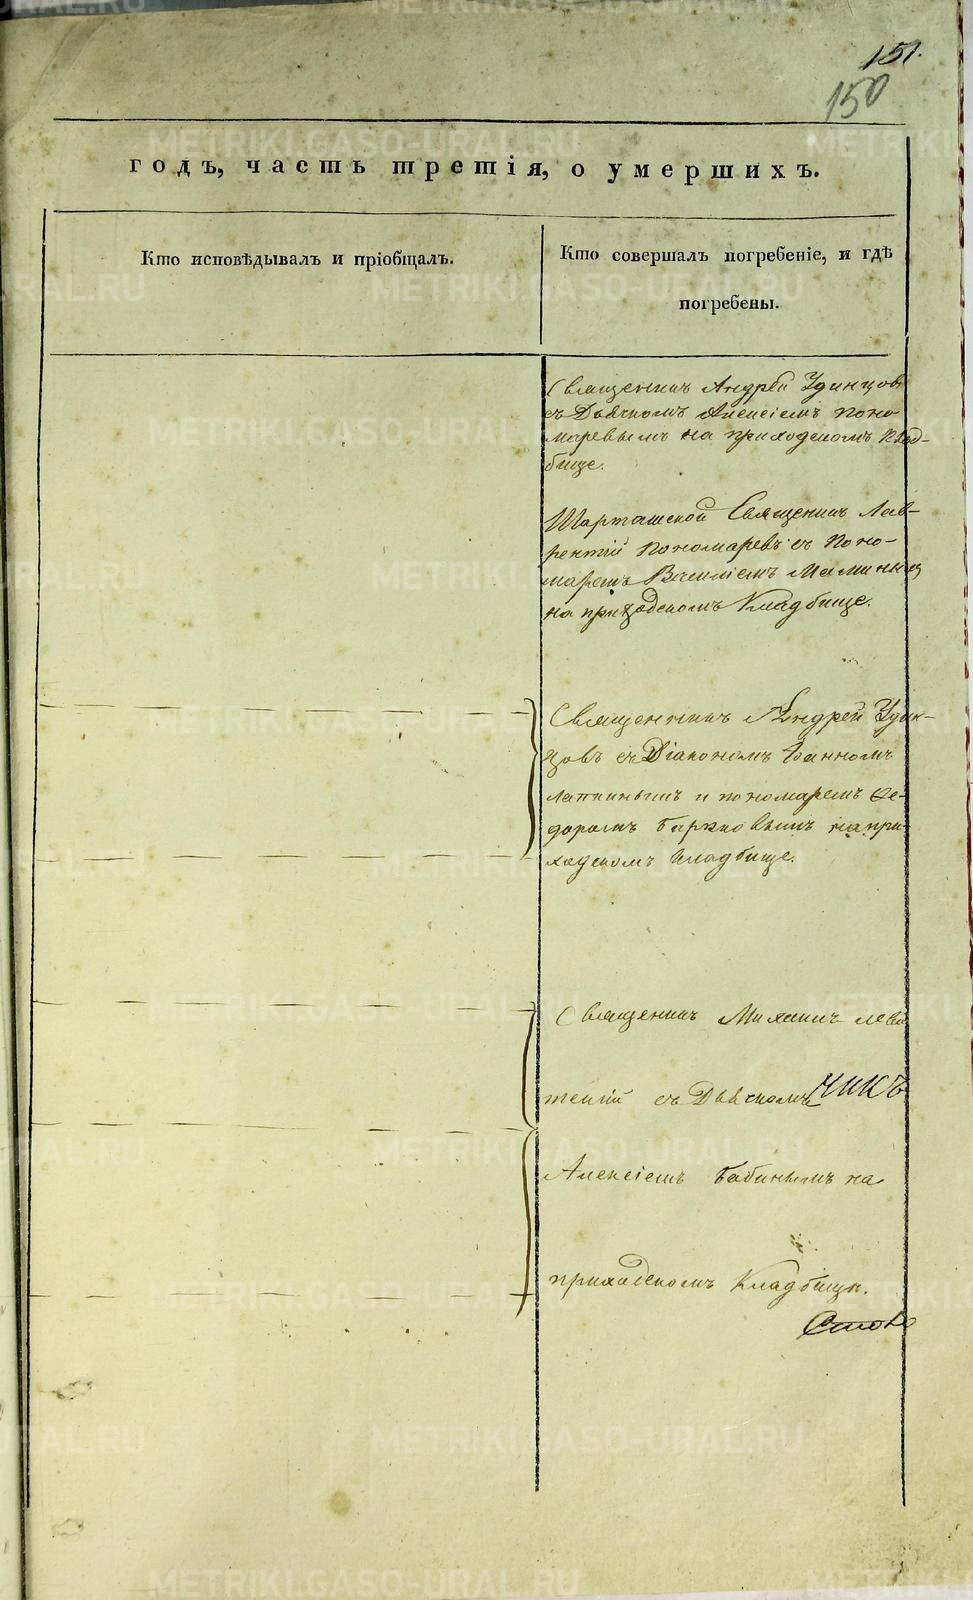 151.
150
годъ, часть третія, о умершихъ.
Кто исповѣдывалъ и пріобщалъ.
Кто совершалъ погребеніе, и гдѣ
погребены.
Священникъ Андрей Удинцовъ
съ Дьячкомъ Алексіемъ Поно
маревымъ на приходскомъ клад-
бище.
Шарташской Священникъ Лав-
рентій Пономаревъ съ Поно-
маремъ Василіемъ Маминым
на приходскомъ Кладбище.
Священникъ Андрей Удин-
цовъ съ Діакономъ Іоанномъ
Лапинымъ и пономаремъ Ѳе-
доромъ на при-
ходскомъ Кладбище.
Священникъ Михаилъ Леви
тскій съ Дьячкомъ
чикъ
Алексіемъ Бабинымъ на
приходскомъ Кладбище.
METRIKI.GASO-URAL.RU